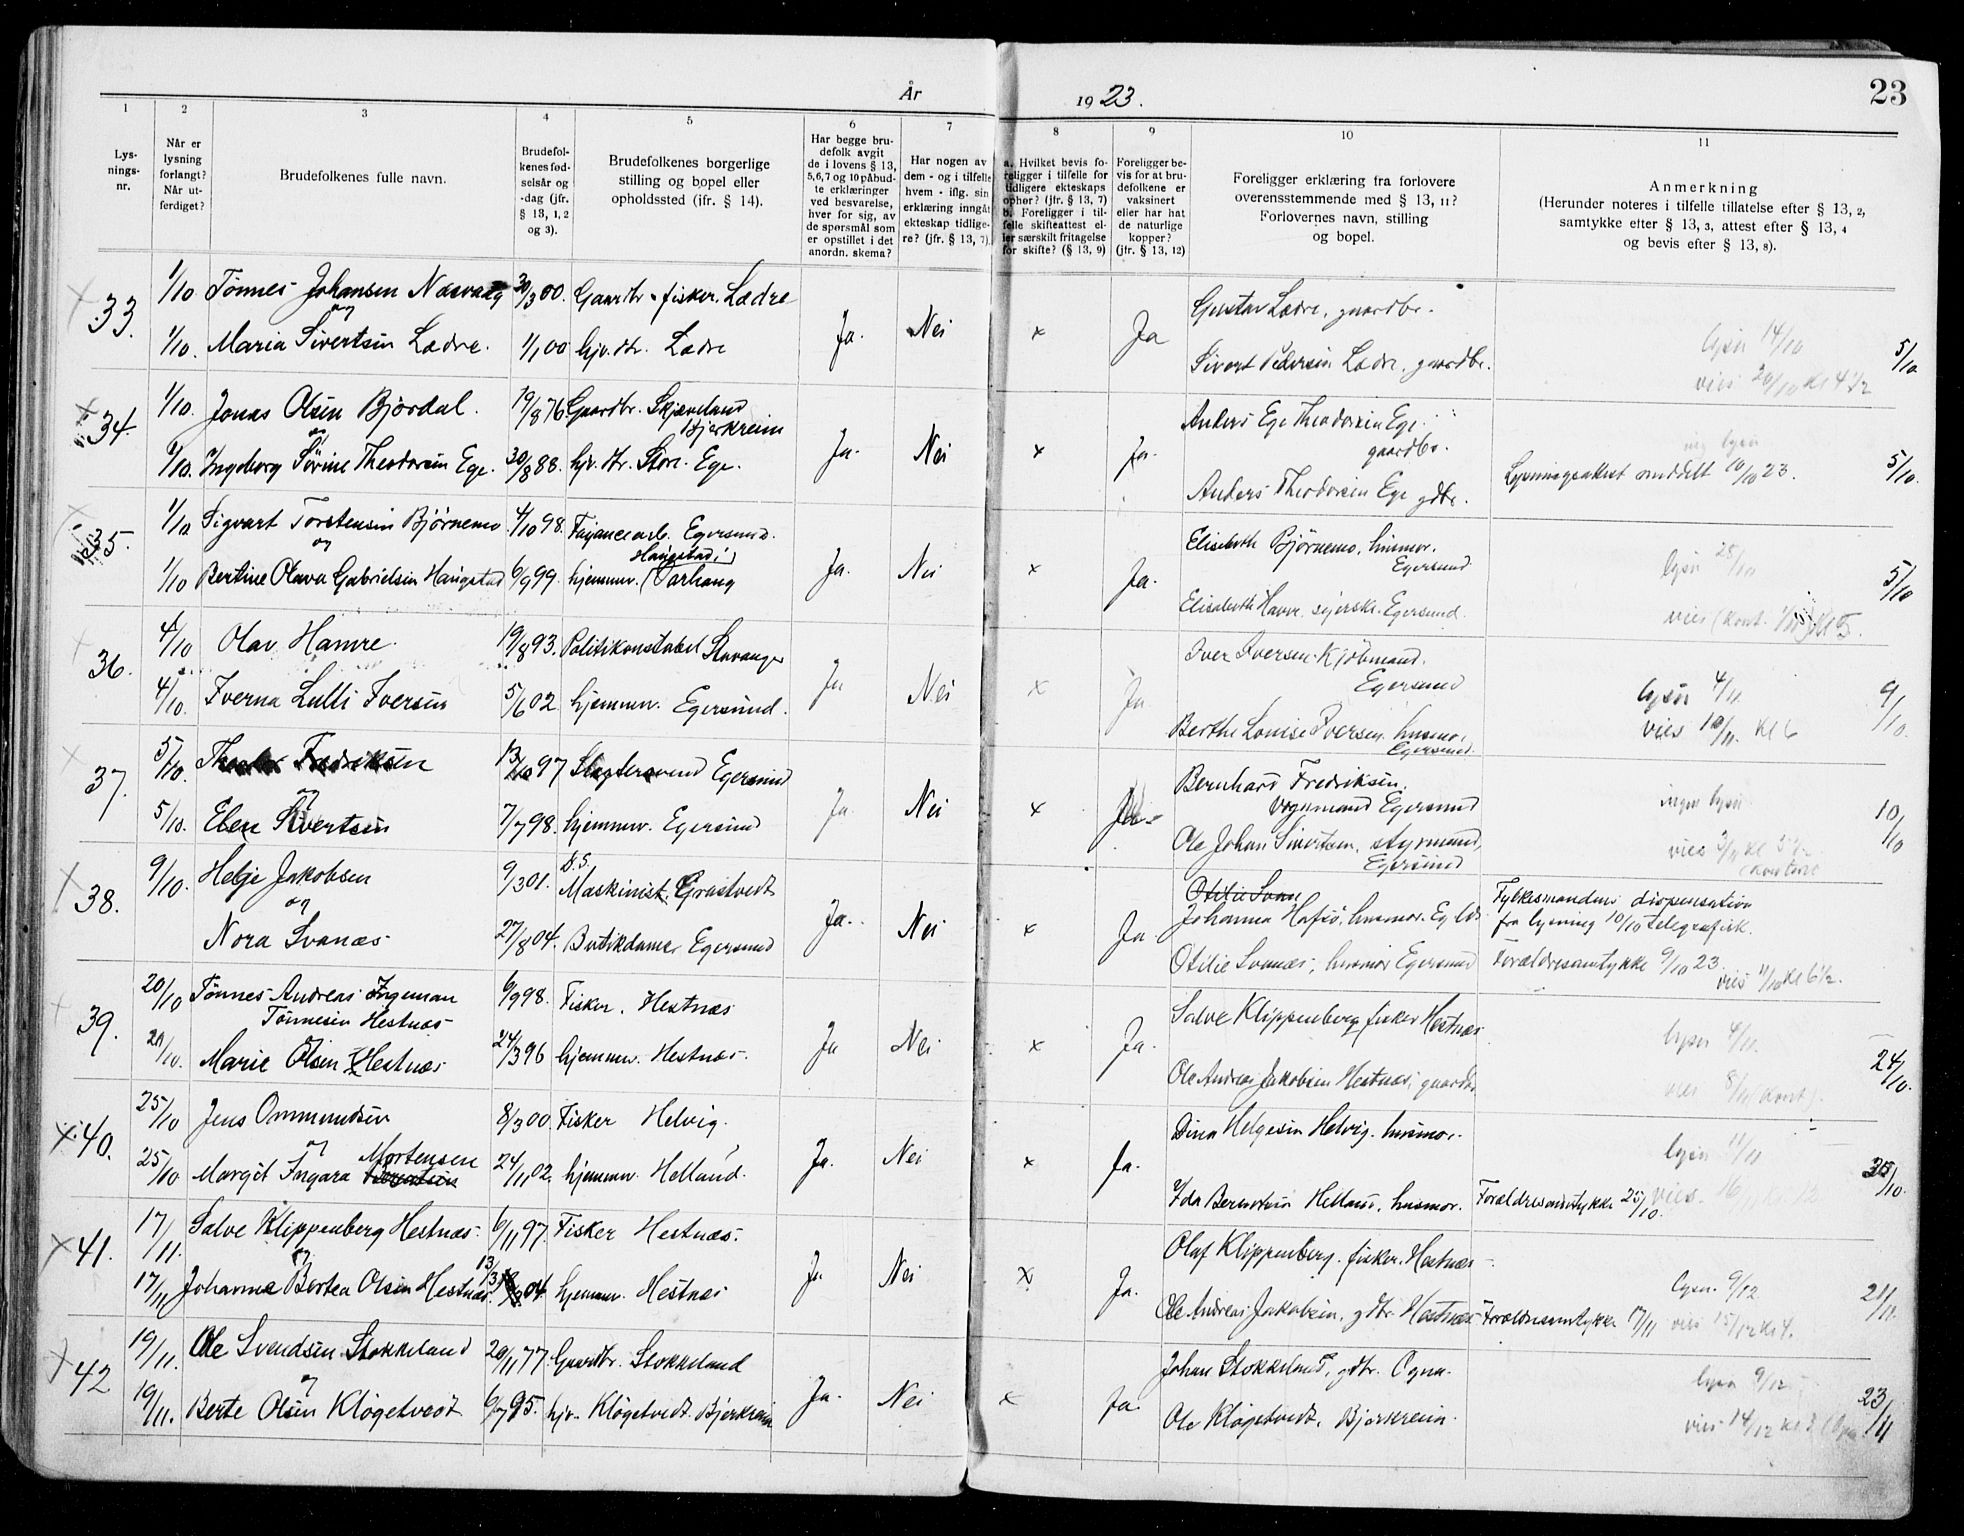 År 1923.
23
1
2
3
4
5
6
7
8
9
10
11
Lys-
nings-
nr.
Når er
lysning
forlangt?
Når ut-
ferdiget?
Brudefolkenes fulle navn.
Brudefol-
kenes fød-
selsår og
-dag (jfr.
§ 13, 1, 2
og 3).
Brudefolkenes borgerlige
stilling og bopel eller
opholdssted (jfr. § 14).
Har begge bru-
defolk avgit
de i lovens § 13,
5,6,7 og 10 påbud-
te erklæringer
ved besvarelse,
hver for sig, av
de spørsmål som
er opstillet i det
anordn. skema?
Har nogen av
dem - og i tilfelle
hvem - iflg. sin
erklæring inngåt
ekteskap tidlige-
re? (jfr. § 13, 7).
a. Hvilket bevis fo-
religger i tilfelle for
tidligere ekteskaps
ophør? (jfr. § 13, 7)
b. Foreligger i til-
felle skifteattest el-
ler særskilt fritagelse
for skifte? (§ 13, 9)
Foreligger be-
vis for at bru-
defolkene er
vaksinert
eller har hat
de naturlige
kopper?
(jfr. § 13, 12)
Foreligger erklæring fra forlovere
overensstemmende med § 13, 11?
Forlovernes navn, stilling
og bopel.
Anmerkning
(Herunder noteres i tilfelle tillatelse efter § 13, 2,
samtykke efter § 13, 3, attest efter § 13, 4
og bevis efter § 13, 8).
33. 1/10 Tønnes Johansen Næsvaag 30/3 00. Gaardbr. fisker. Lædre Gustav Lædre, gaardbr.
og
1/10. Maria Sivertsen Lædre. 1/1 00 hjv. dtr. Lædre Ja. Nei x Ja Sivert Pedersen Lædre, gaardbr. lyser 14/10 5/10
vies 20/10 kl 4 1/2
34. 1/10. Jonas Olsen Bjordal. 19/8 76 Gaardbr. Skjæveland
Bjerkreim Anders Ege Theodorsen Ege
gaardbr.
og
1/10. Ingeborg Sørine Theodorsen Ege. 30/8 88. hjv. dtr. Store Ege. Ja. Nei x Ja. Anders Theodorsen Ege gdbr. Lysningsattest meddelt 10/10 23. 5/10.
35. 1/10 Sigvart Torstensen Bjørnemo 4/10 98. Fajancearb. Egersund. Elisabeth Bjørnemo, husmor.
Egersund
og
1/10 Bertine Olava Gabrielsen Haugstad 6/9 99. hjemmev. (Varhaug Ja. Nei x Ja. Elisabeth Havre. syerske. Egersund. lyser 28/10 5/10
36. 4/10 Olav Hamre. 19/8 93. Politikonstabel Stavanger Iver Iversen Kjøbmand.
Egersund
4/10. Iverna Lulli Iversen 5/6 02 hjemmev. Egersund. Ja Nei x Ja. Berthe Louise Iversen. husmor,
Egersund. lyser 4/11 9/10.
vies 10/11. kl 6
37. 5/10. Fredriksen 13/10 97 Slagtersvend Egersund Bernhard Fredriksen,
Vognmand Egersund
og
5/10. Elen Sivertsen 7/7 98. hjemmev. Egersund Ja. Nei x Ole Johan Sivertsen, styrmand,
Egersund ingen lysn. 10/10
38. 9/10. Helje Jakobsen 9/3 01. D.S.
Maskinist. Grastvedt Otilie Svan
Johanna Hafsø, husmor. Eg ld. Fylkesmandens dispensation
fra lysning 10/10 telegrafisk.
og
Nora Svanæs 27/8 04. Butikdame. Egersund Ja. Nei x Ja. Otilie Svanæs, husmor Egersund Forældresamtykke 9/10 23
vies 11/10 kl 6 1/2.
39. 20/10 Tønnes Andreas Ingeman
Tønnesen Hestnæs 6/9 98. Fisker. Hestnæs Salve Klippenberg fisker Hestnæs
20/10. Marie Olsen Hestnæs 24/3 96 hjemmev. Hestnæs. Ja Nei x Ja. Ole Andreas Jakobsen Hestnæs, gaardbr. lyser 4/11. 24/10.
vies 8/11 (kont).
40. 25/10 Jens Ommundsen 8/3 00. Fisker Helvig. Dina Helgesen Helvig. husmor.
og
25/10 Margit Ingara Mortensen 24/11 02. hjemmev. Helland. Ja. Nei x Ja. Ida Berntsen Helland, husmor. lyser 11/11 Forældresamtykke 25/10. vies 30/10.
41. 17/11. Salve Klippenberg Hestnæs. 6/11 97. Fisker Hestnæs. Olaf Klippenberg. fisker. Hestnæs
og
17/11 Johanna Bertea Olsen Hestnæs. 13/3 04. hjemmev. Hestnæs Ja Nei x Ja. Ole Andreas Jakobsen, gdbr. Hestnæs Forældresamtykke 17/11 lyser. 9/12 vies 15/12 kl 4. 21/11.
42 19/11. Ole Svendsen Stokkeland 20/11 77. Gaardbr. Stokkeland Johan Stokkeland, gdbr. Ogna.
og
19/11. Berte Olsen Kløgetvedt 6/7 95. hjv. Kløgetvedt. Bjerkreim Ja. Nei x Ja. Ole Kløgetvedt. Bjerkreim. lyser 9/12 23/11
vies 14/12 kl